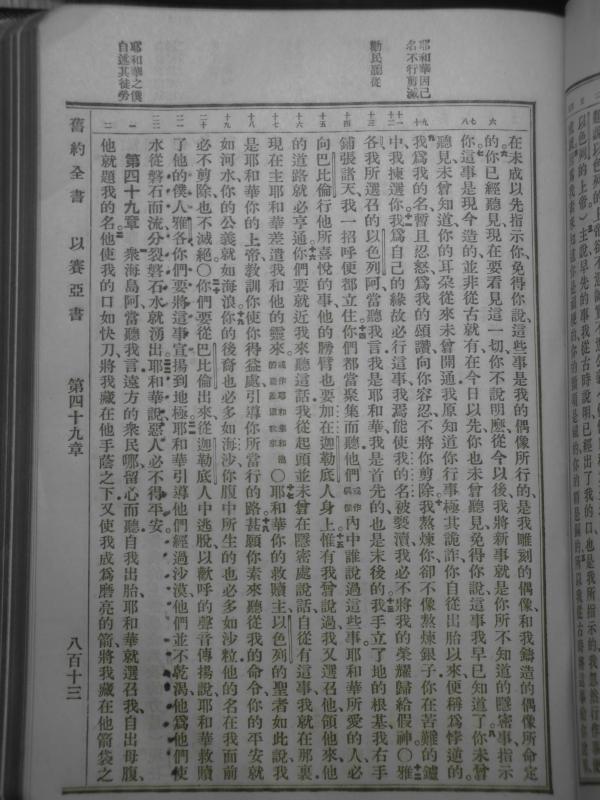 耶和華因己
名不行剪滅
勸民聽從
耶和華之僕
自述其徒勞
在未成以先指示你免得你說這些事是我的偶像所行的是我雕刻的偶像和我鑄造的偶像所命定
的你已經聽見現在要看見這一切你不說明麼從今以後我將新事就是你所不知道的隱密事指示
你這事是現今造的並非從古就有在今日以先你也未曾聽見免得你說這事我早已知道了你未曾
聽見未曾知道你的耳朵從來未曾開通我原知道你行事極其詭詐你自從出胎以來便稱爲悖逆的
我爲我的名暫且忍怒爲我的頌讚向你容忍不將你剪除我熬煉你卻不像熬煉銀子你在苦難的鑪
中我揀選你我爲自己的緣故必行這事我焉能使我的名被褻瀆我必不將我的榮耀歸給假神〇雅
各我所選召的以色列阿當聽我言我是耶和華我是首先的也是末後的我手立了地的根基我右手
鋪張諸天我一招呼便都立住你們都當聚集而聽他們內中誰說過這些事耶和華所愛的人必
向巴比倫行他所喜悅的事他的膀臂也要加在迦勒底人身上惟有我曾說過我又選召他領他來他
的道路就必亨通你們要就近我來聽這話我從起頭並未曾在隱密處說話自從有這事我就在那裏
現在主耶和華差遣我和他的靈來〇耶和華你的救贖主以色列的聖者如此說我
是耶和華你的上帝教訓你使你得益處引導你所當行的路甚願你素來聽從我的命令你的平安就
如河水你的公義就如海浪你的後裔也必多如海沙你腹中所生的也必多如沙粒他的名在我面前
必不剪除也不滅絕〇你們要從巴比倫出來從迦勒底人中逃脫以歡呼的聲音傳揚說耶和華救贖
了他的僕人雅各你們要將這事宣揚到地極耶和華引導他們經過沙漠他們並不乾渴他爲他們使
水從磐石而流分裂磐石水就湧出耶和華說惡人必不得平安
第四十九章 衆海島阿當聽我言遠方的衆民哪留心而聽自我出胎耶和華就選召我自出母腹
他就題我的名他使我的口如快刀將我藏在他手蔭之下又使我成爲磨亮的箭將我藏在他箭袋之
舊約全書 以賽亞書 第四十九章 八百十三